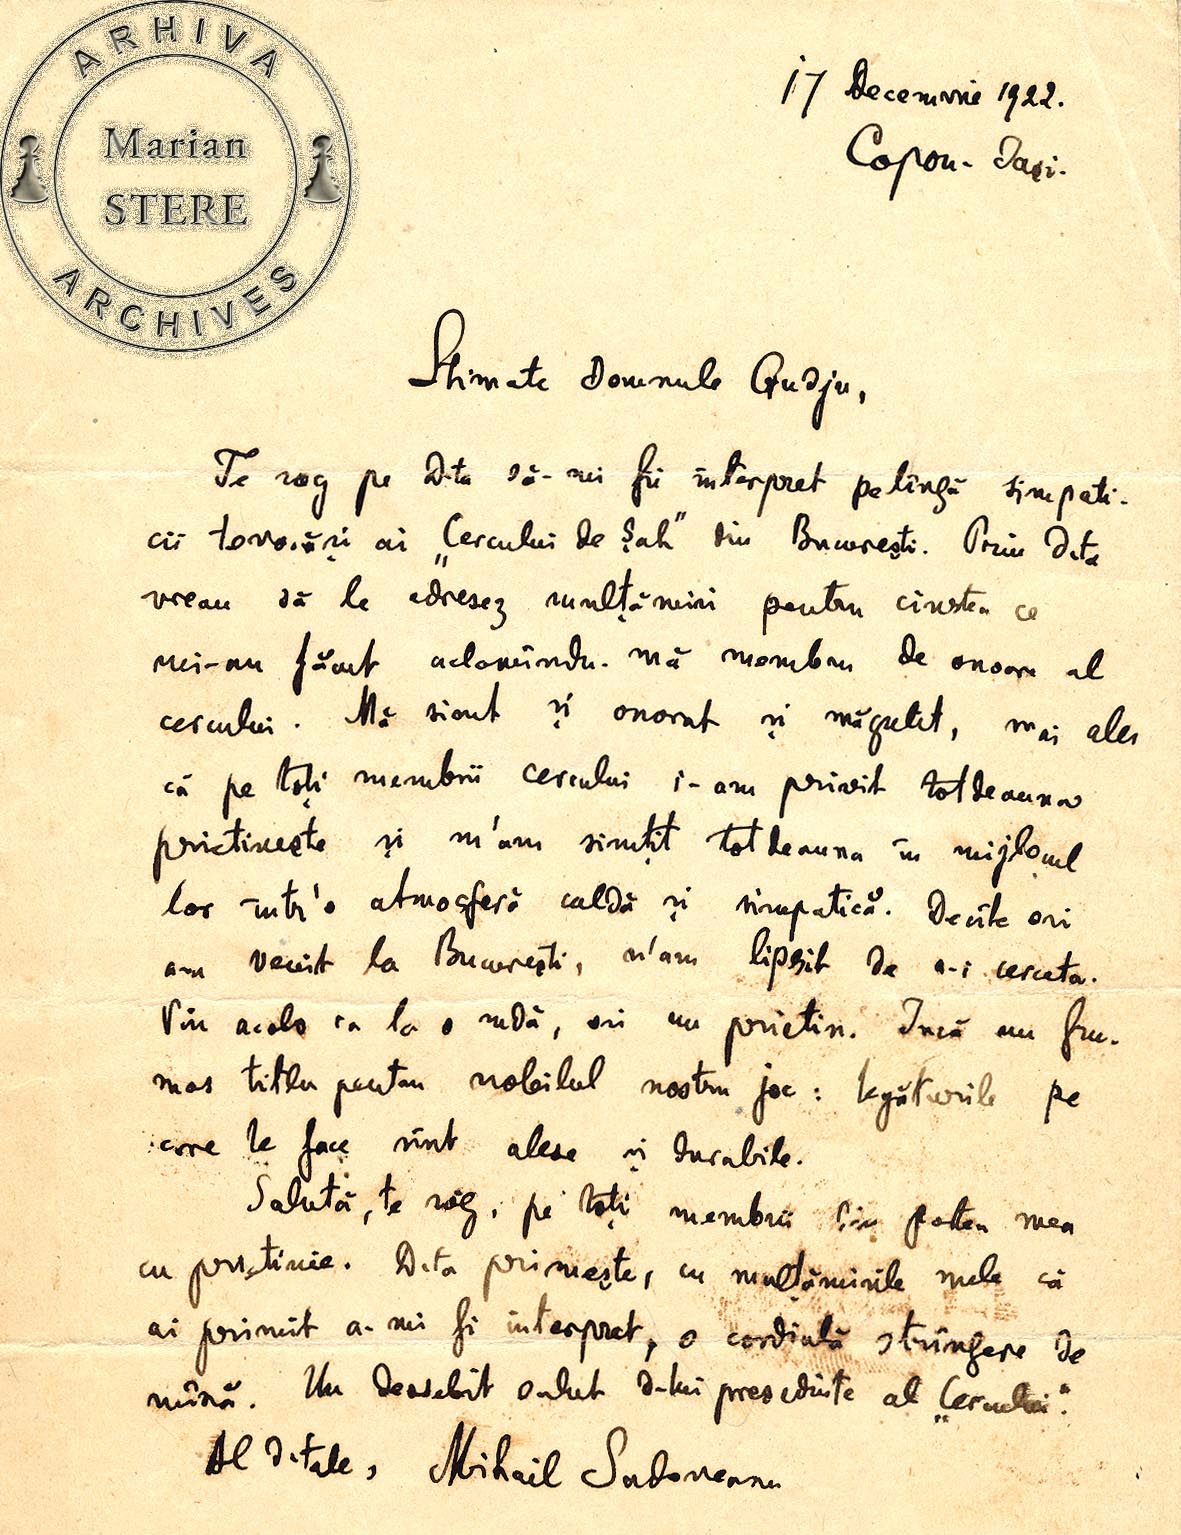 ARHIVA
Marian
STERE
ARCHIVES
17 Decemvrie 1922.
Copou - Iași.
Stimate Domnule Gudju,
Te rog pe D-ta să-mi fii interpret pelîngă simpati-
cii tovarăși ai „Cercului de Șah" din București. Prin D-ta
vreau să le adresez mulțămiri pentru cinstea ce
mi-au făcut aclamîndu-mă membru de onoare al
cercului. Mă simt și onorat și măgulit, mai ales
că pe toți membrii cercului i-am privit totdeauna
prietinește și m'am simțit totdeauna în mijlocul
lor într'o atmosferă caldă și simpatică. Decîte ori
am venit la București, n'am lipsit de a-i cerceta.
Vin acolo ca la o rudă, ori un prietin. Încă un fru-
mos titlu pentru nobilul nostru joc: legăturile pe
care le face sînt alese și durabile.
Salută, te rog, pe toți membrii din partea mea
cu prietinie. D-ta primește, cu mulțămirile mele că
ai primit a-mi fi interpret, o cordială strîngere de
mînă. Un deosebit salut d-lui președinte al „Cercului".
Al D-tale, Mihail Sadoveanu